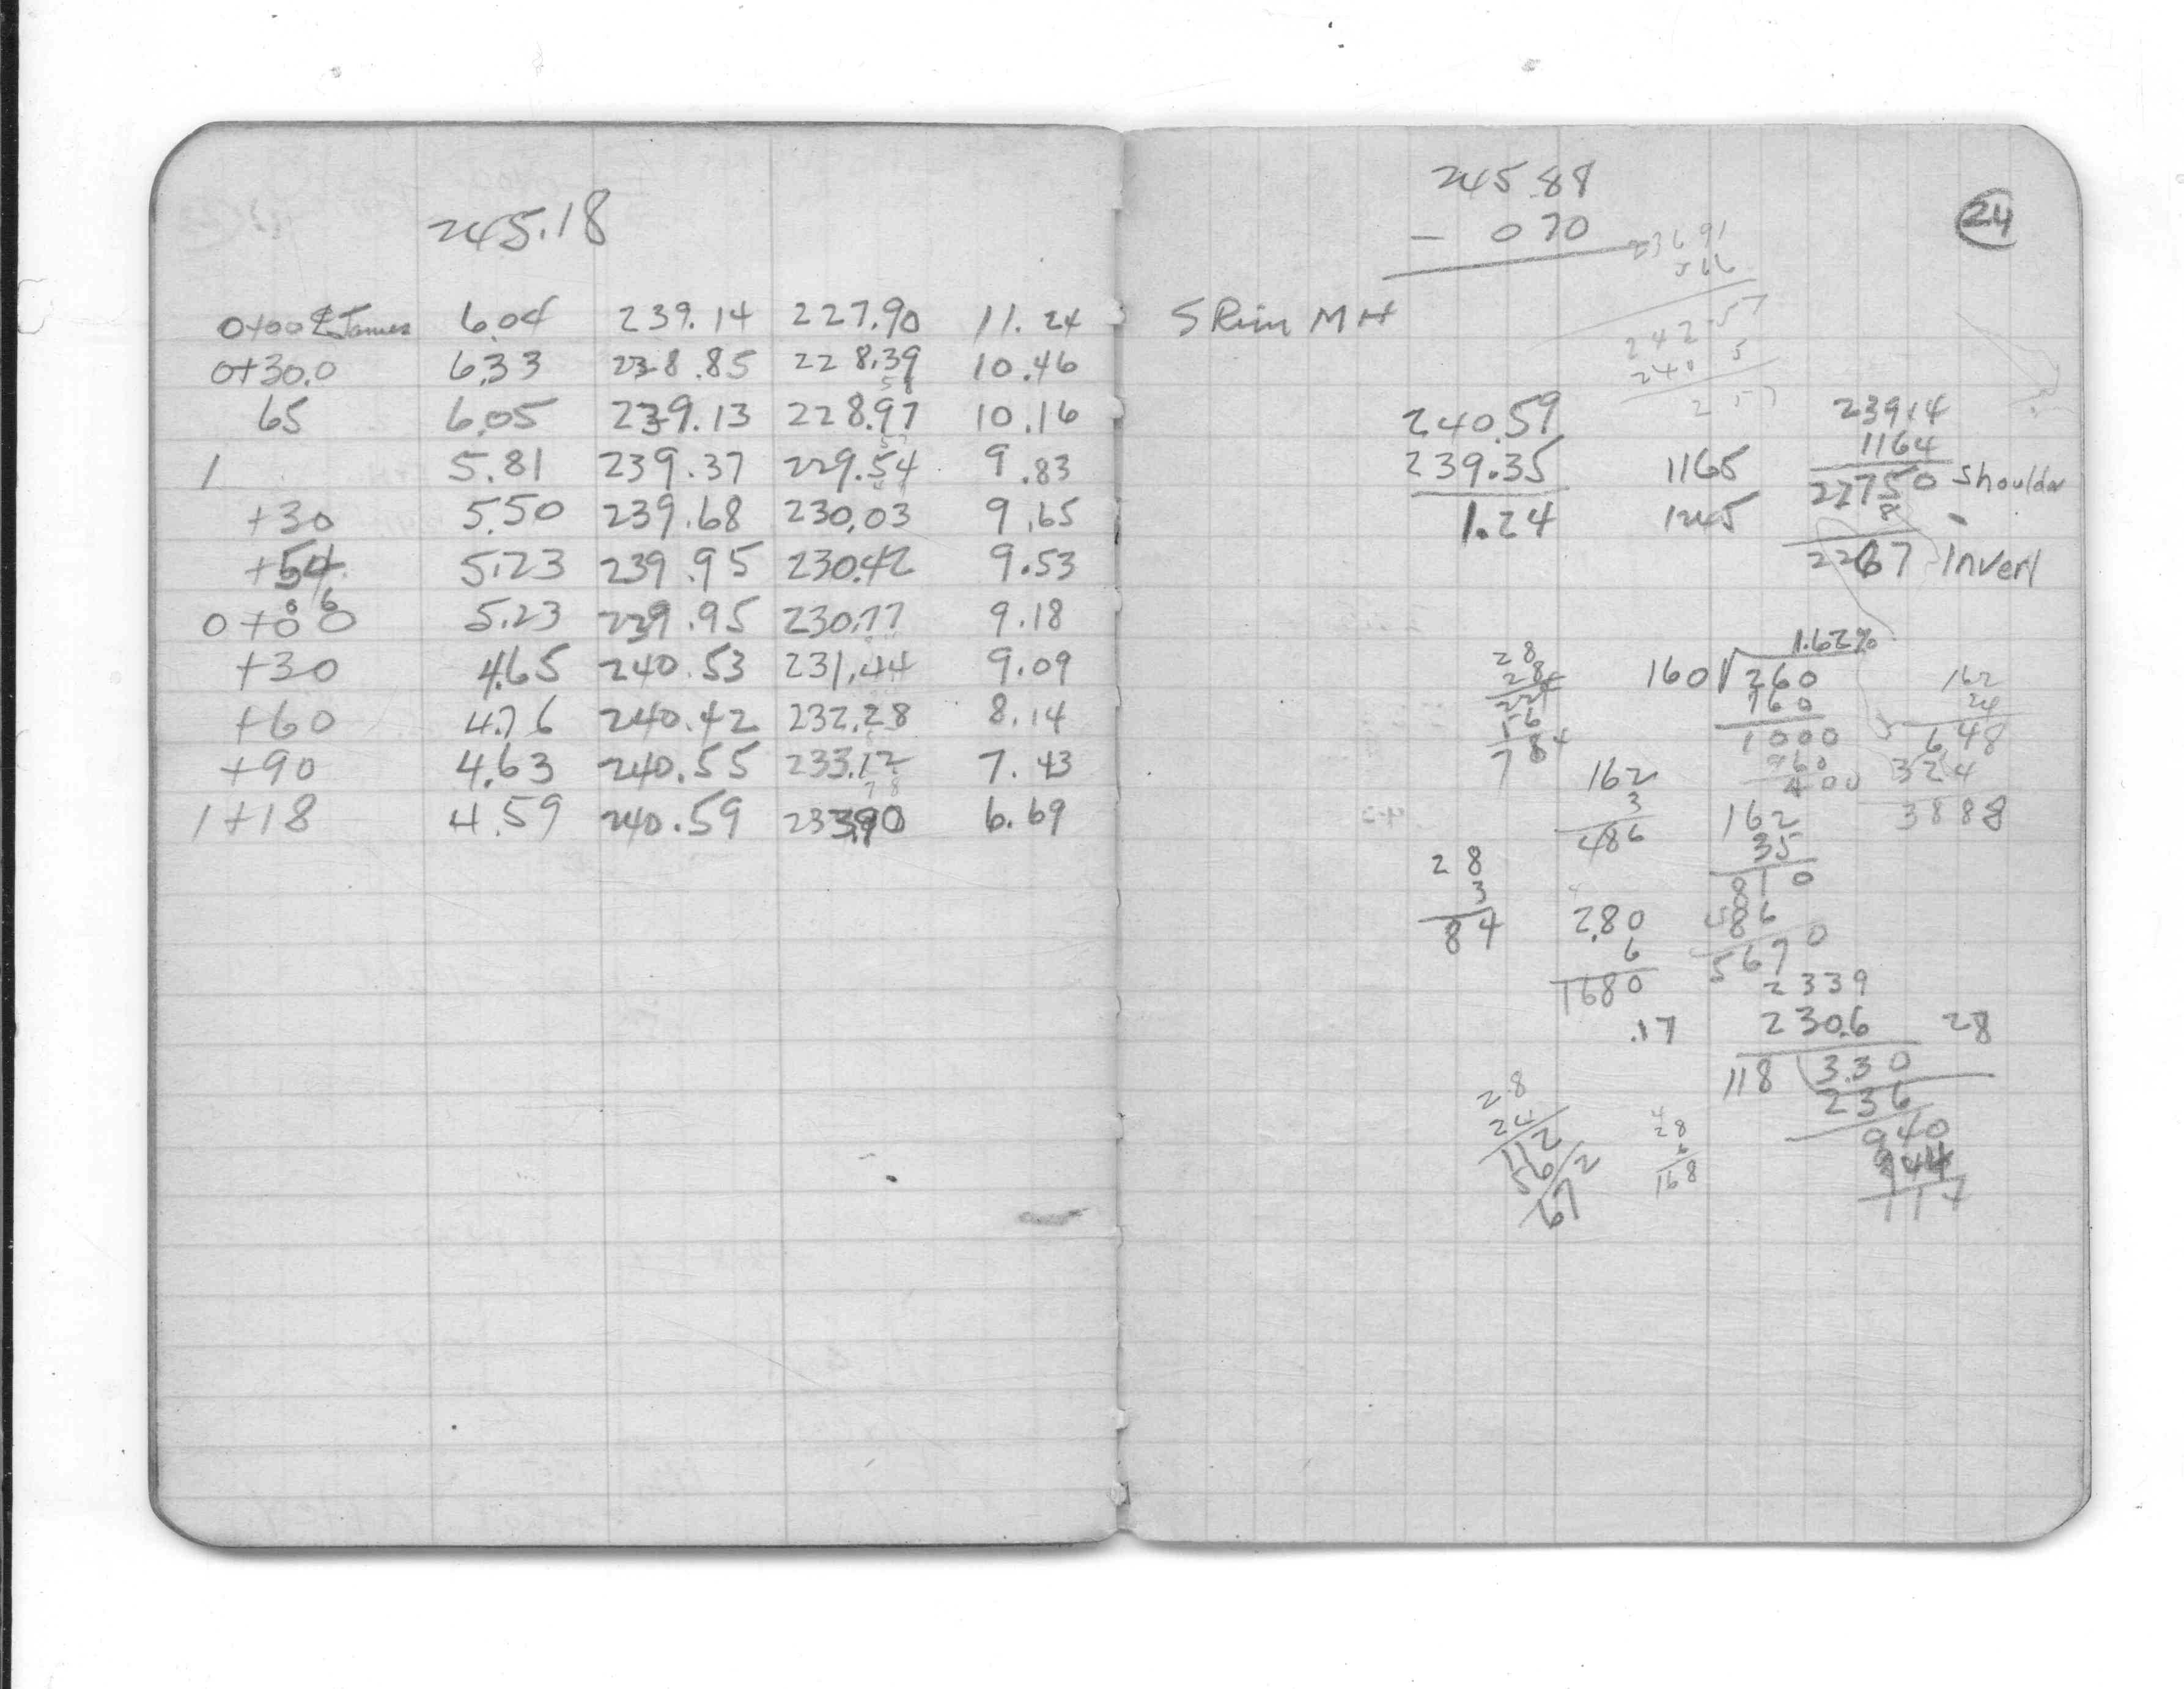 245.18
0+00 ℄ James 6.04 239.14 227.90 11.24
0+30.0 6.33 238.85 228.39 10.46
65 6.05 239.13 228.97 10.16
1 5.81 239.37 229.54 9.83
+30 5.50 239.68 230.03 9.65
+54 5.23 239.95 230.42 9.53
0+06 5.23 239.95 230.77 9.18
+30 4.65 240.53 231.44 9.09
+60 4.76 240.42 232.28 8.14
+90 4.63 240.55 233.12 7.43
1+18 4.59 240.59 233.90 6.69
24
245.88
- 070
S Rim MH
242.57
240 5
2 57
240.59
239.35
1.24
1165
1245
239.14
1164
22750 Shoulder
8
2267 Invert
1.62%
160 260
160
1000
960
400
162
24
648
324
3888
28
784
162
3
486
162
35
810
486
5670
28
3
84
2.80
6
1680
.17
2339
230.6 28
118 3.30
236
940
944
28
24
112
56
672
28
6
168